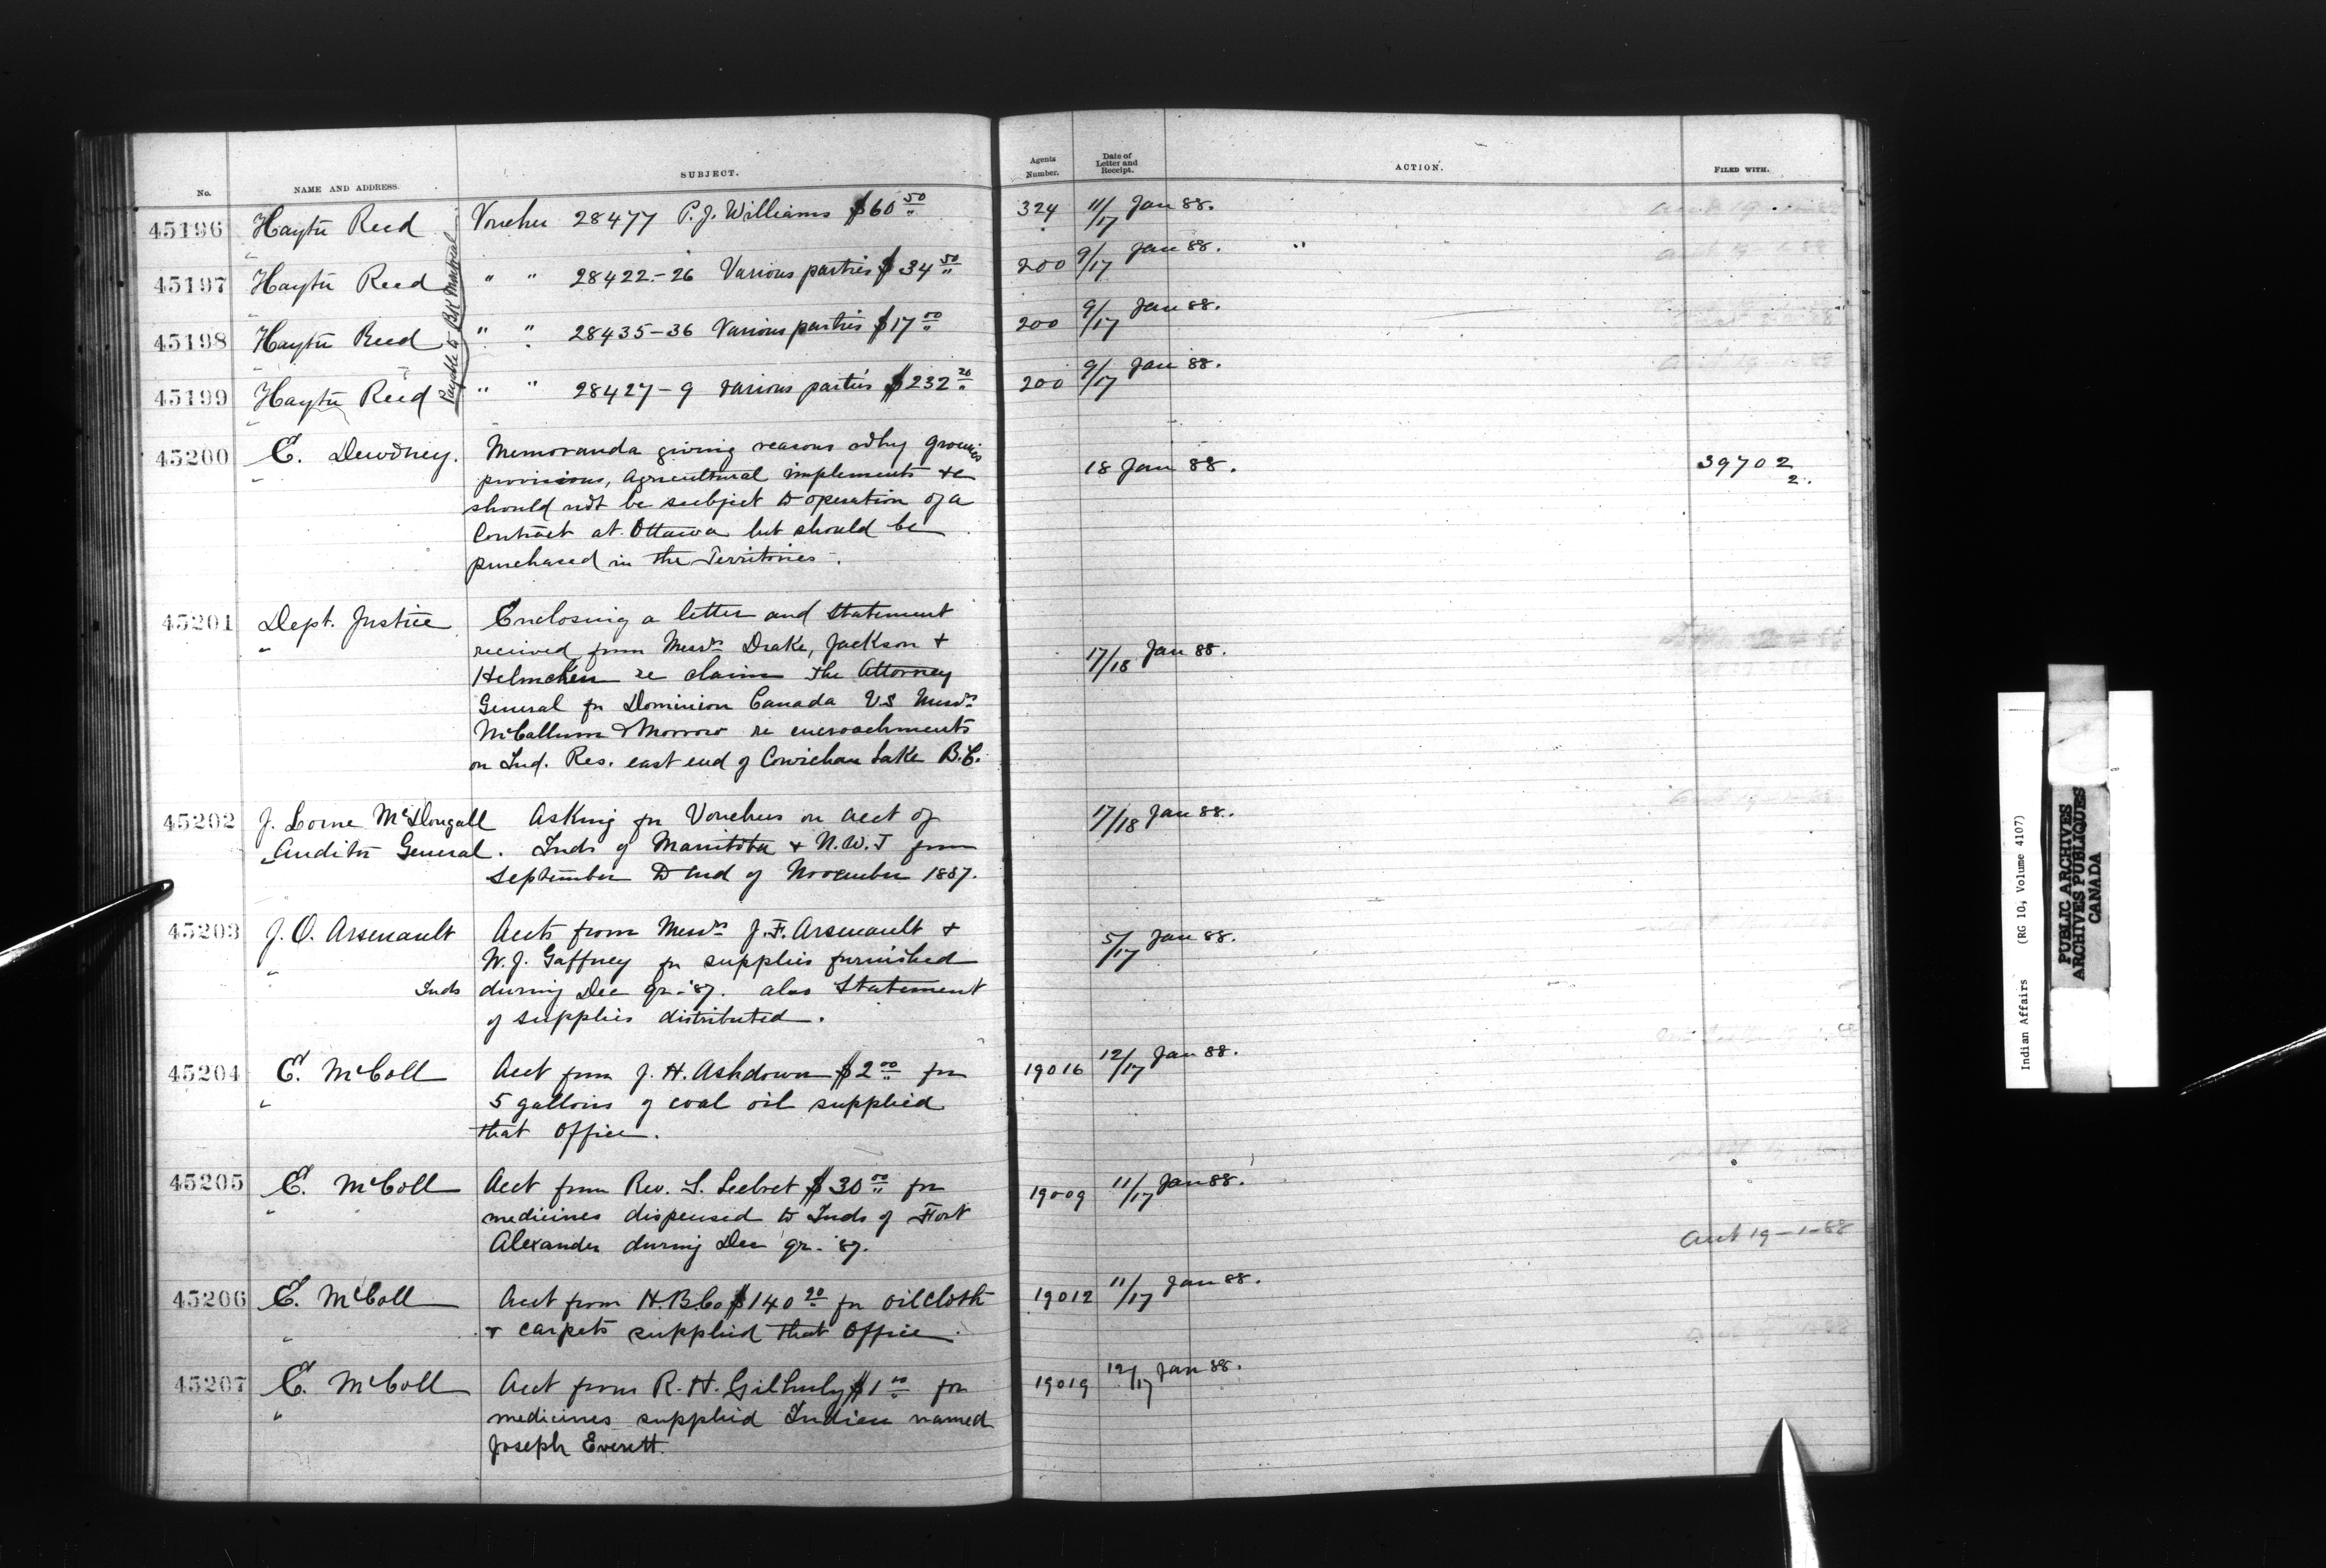 No. NAME AND ADDRESS. SUBJECT. Agents Number. Date of Letter and Receipt. ACTION. FILED WITH.
45196 Haytr Reed Voucher 28477 P.J. Williams $60 50 324 11/17 Jan 88.
45197 Haytr Reed " " 28422-26 Various parties $34 50 200 9/17 Jan 88. "
45198 Haytr Reed " " 28435-36 Various parties $17 00 200 9/17 Jan 88.
45199 Haytr Reed " " 28427-9 Various parties $232 20 200 9/17 Jan 88.
Payable to BK Montreal
45200 E. Dewdney. Memoranda giving reasons why groceries 18 Jan 88. 39702
" provisions, Agricultural implements &c 2.
should not be subject to operation of a
Contract at Ottawa but should be
purchased in the Territories.
45201 Dept. Justice Enclosing a letter and statement
" received from Messrs Drake, Jackson + 17/18 Jan 88.
Helmcken re claim the Attorney
General fr Dominion Canada VS Messrs
McCallum & Morrow re encroachments
on Ind. Res. east end of Cowichan Lake B.C.
45202 J. Lorne McDougall Asking for Vouchers on acct of 17/18 Jan 88.
Auditr General. Inds of Manitoba + N.W.T from
September to end of November 1887.
45203 J. O. Arsenault Accts from Messrs J.F. Arsenault + 5/17 Jan 88.
" W. J. Gaffney fr supplies furnished
Inds during Dec qr-'87. also Statement
of supplies distributed.
45204 E. McColl Acct from J. H. Ashdown $2 00 for 19016 12/17 Jan 88.
" 5 gallons of coal oil supplied
that Office.
45205 E. McColl Acct from Rev. S. Leebret $30 00 for 19009 11/17 Jan 88.
" medicines dispensed to Inds of Fort
Alexander during Dec qr-'87. acct 19-1-88
45206 E. McColl Acct from H.B.Co $140 20 fr oilcloth 19012 11/17 Jan 88.
" + carpets supplied that Office.
45207 E. McColl Acct from R. H. Gilhuly $1 00 for 19019 12/17 Jan 88.
" medicines supplied Indian named
Joseph Everett.
Indian Affairs (RG 10, Volume 4107)
PUBLIC ARCHIVES
ARCHIVES PUBLIQUES
CANADA